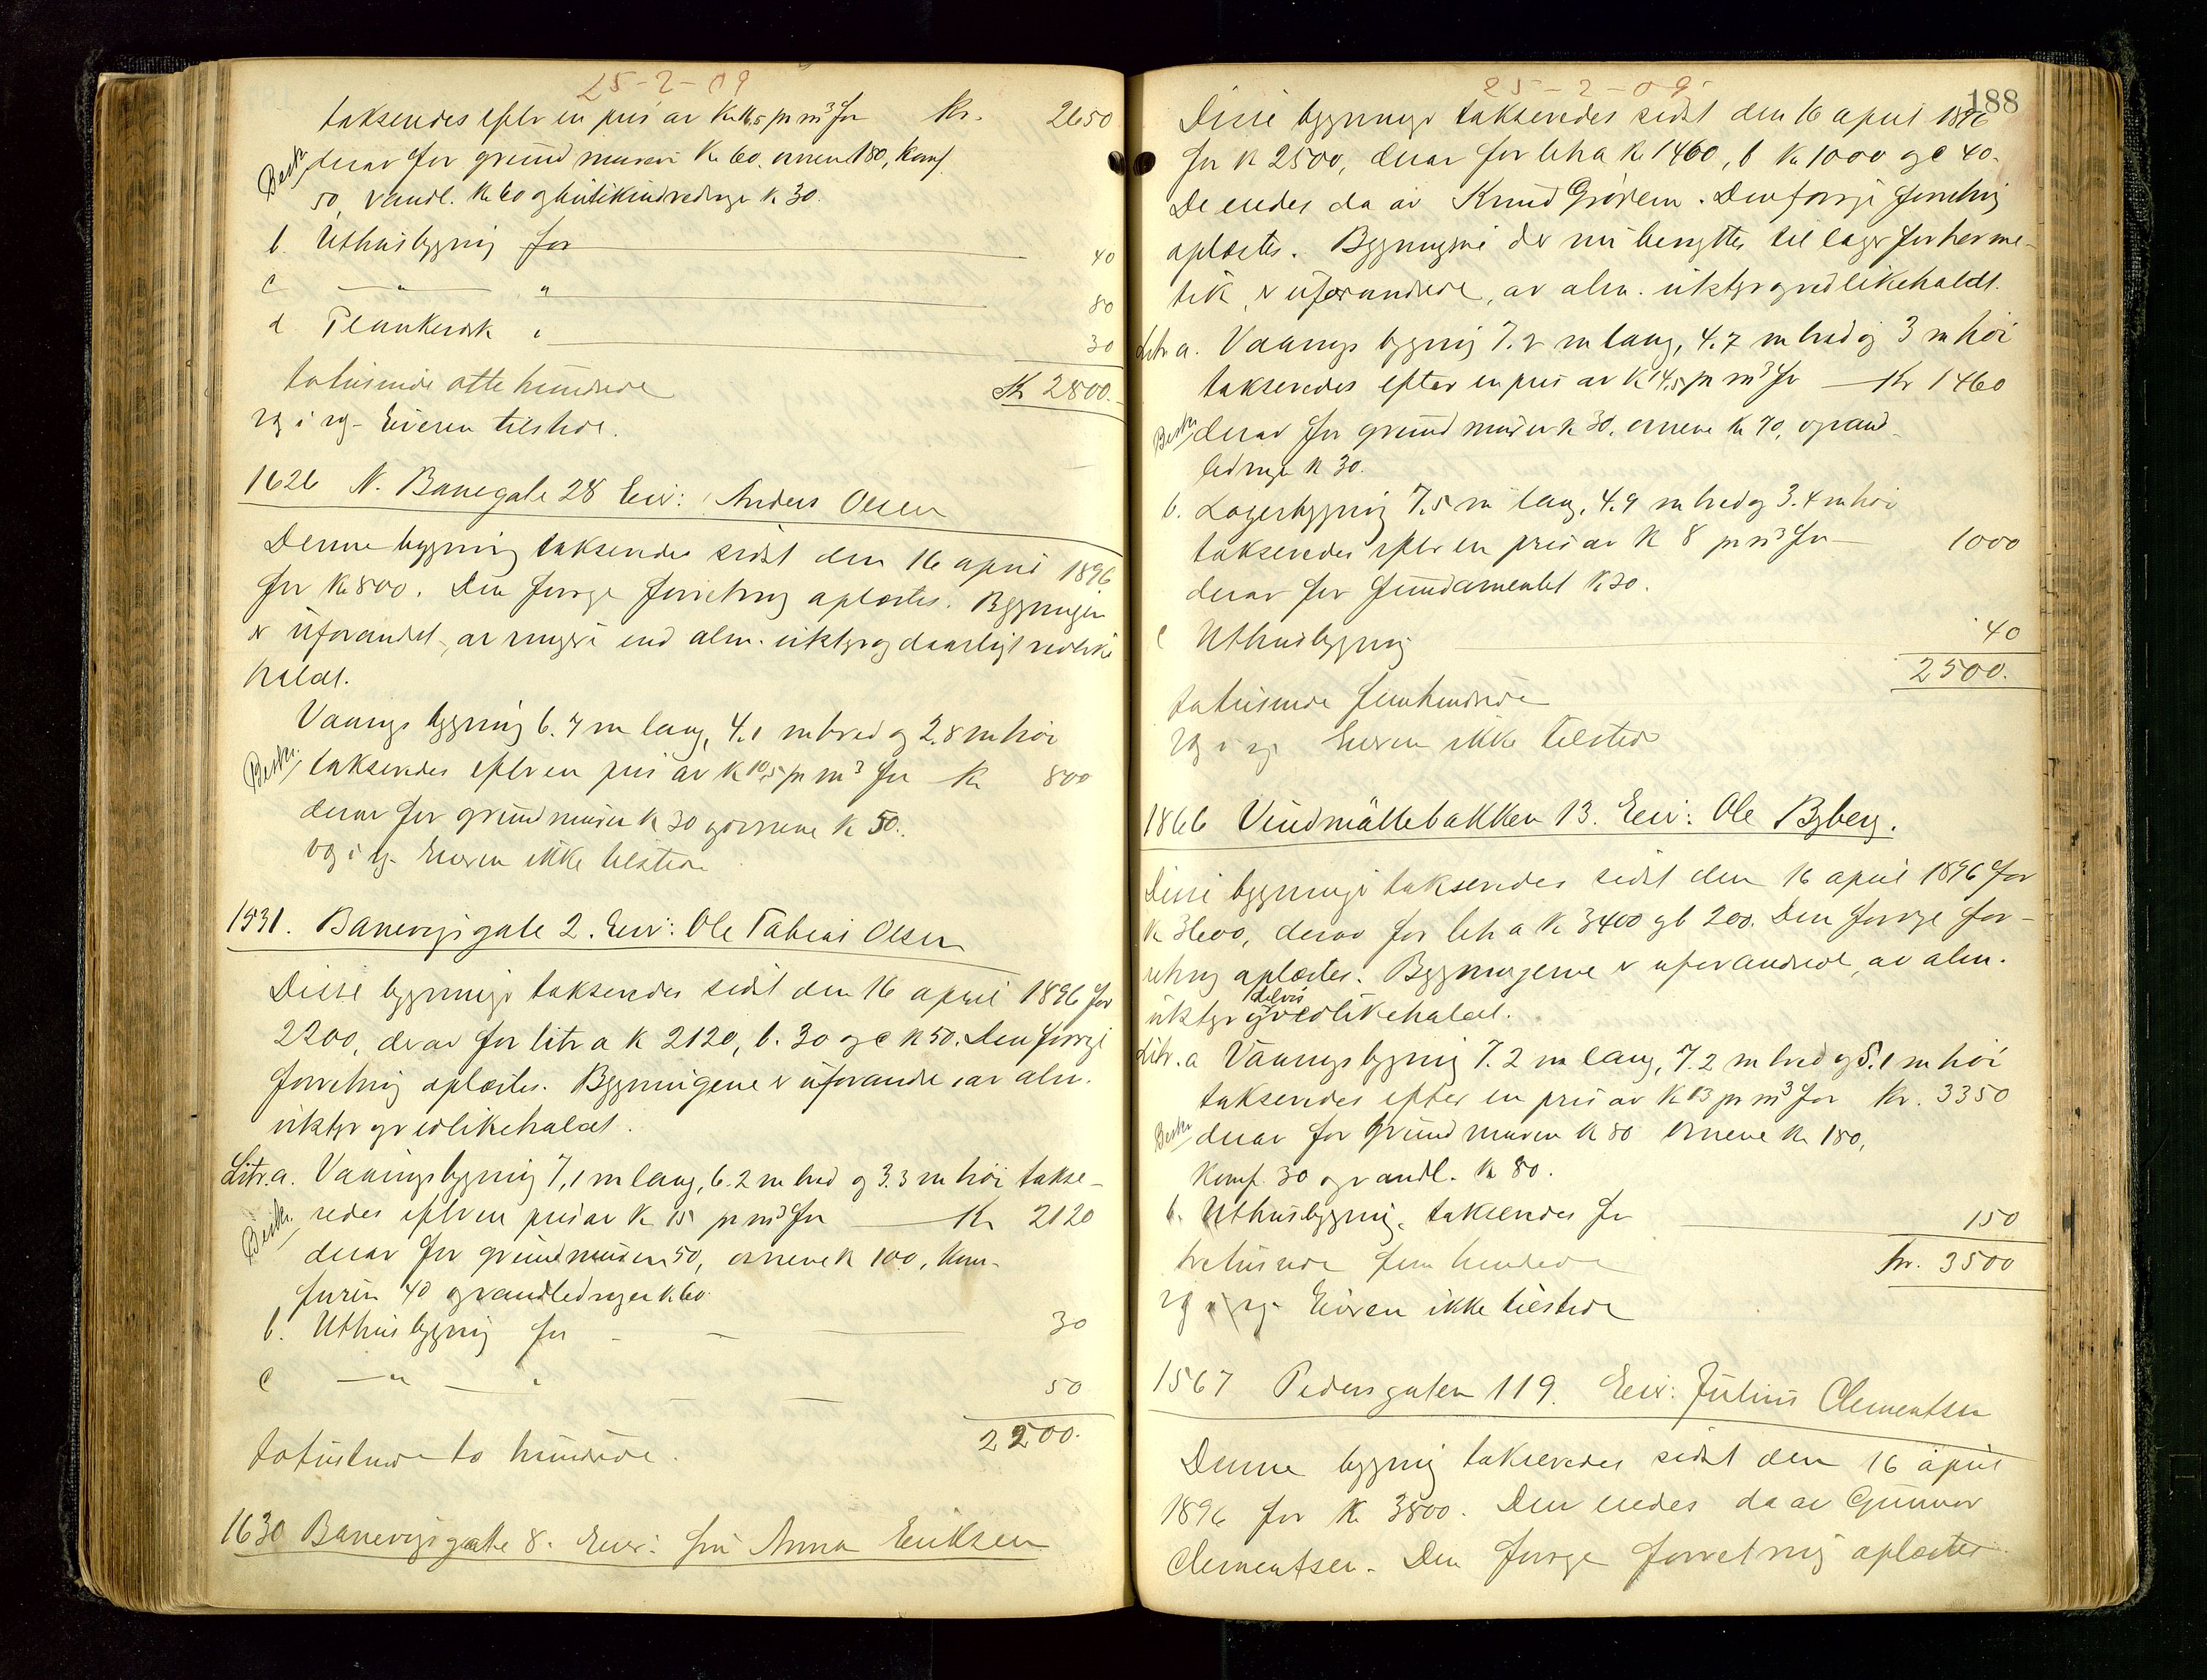 25-2-09
takseredes efter en pris av K 16,5 pr m³ for Kr. 2650
Besk. derav for grundmuren K 60. ovnen 180, komf.
50, vandl. K 60 og butikindredninge K 30.
b. Uthusbygning for 40
c — " — " 80
d Plankeverk " 30
totusinde otte hundrede Kr 2800.
Eieren tilstede.
1626 N. Banegate 28 Eier: Anders Olsen
Denne bygning takseredes sidst den 16 april 1896
for K 800. Den forrige forretning oplæstes. Bygningen
er uforandret, av ringere end alm. utstyr og daarligt vedlike
holdt.
Vaaningsbygning 6.7 m lang, 4.1 m bred og 2.8 m høi
Beskr. takseredes efter en pris av K 10,5 pr m³ for Kr 800
derav for grundmuren K 30 og ovnene K 50.
Eieren ikke tilstede
1531. Baneveisgate 2. Eier: Ole Tobias Olsen
Disse bygninger takseredes sidst den 16 april 1896 for
2200, derav for litr a K 2120, b. 30 og c K 50. Den forrige
forretning oplæstes. Bygningene er uforandre, av alm.
utstyr og vedlikeholdt.
Litr. a. Vaaningsbygning 7,1 m lang, 6.2 m bred og 3.3 m høi takse-
Beskr. redes efter en pris av K 15 pr m³ for Kr 2120
derav for grundmuren 50, ovnene K 100, kom-
furen 40 og vandledningen K 60.
b. Uthusbygning for 30
c — " — " 50
totusinde to hundrede. 2200.
1630 Baneveisgate 8. Eier: fru Anna Eriksen
25-2-09
188
Disse bygninger takseredes sidst den 16 april 1896
for K 2500, derav for litr a Kr 1460, b Kr 1000 og c 40.
De eiedes da av Knud Grødem. Den forrige forretning
oplæstes. Bygningene der nu benyttes til lager for herme-
tik, er uforandrede, av alm. utstyr og vedlikeholdt.
Litr a. Vaanings bygning 7.2 m lang, 4.7 m bred og 3 m høi
takseredes efter en pris av K 14,5 pr m³ for Kr 1460
Beskr. derav for grundmuren K 30. ovnene Kr 70, og vand-
ledningen K 30.
b. Lagerbygning 7,5 m lang, 4.9 m bred og 3.4 m høi
takseredes efter en pris av K 8 pr m³ for 1000
derav for fundamentet K 30.
c Uthusbygning 40
totusinde femhundrede 2500.
Eieren ikke tilstede
1866 Vindmøllebakken 13. Eier: Ole Byberg.
Disse bygninger takseredes sidst den 16 april 1896 for
K 3600, derav for litr a K 3400 og b 200. Den forrige for-
retning oplæstes. Bygningerne er uforandrede, av alm.
utstyr og delvis vedlikeholdt.
Litr. a Vaaningsbygning 7.2 m lang, 7.2 m bred og 5.1 m høi
takseredes efter en pris av K 13 pr m³ for Kr. 3350
Beskr derav for grundmuren K 80 ovnene Kr 180,
komf. 30 og vandl. Kr 80.
b. Uthusbygning. takseredes for 150
tretusinde fem hundrede Kr. 3500
Eieren ikke tilstede
1567 Pedersgaten 119. Eier: Julius Clementsen
Denne bygning takseredes sidst den 16 april
1896 for K 3800. Den eiedes da av Gunnar
Clementsen. Den forrige forretning oplæstes.